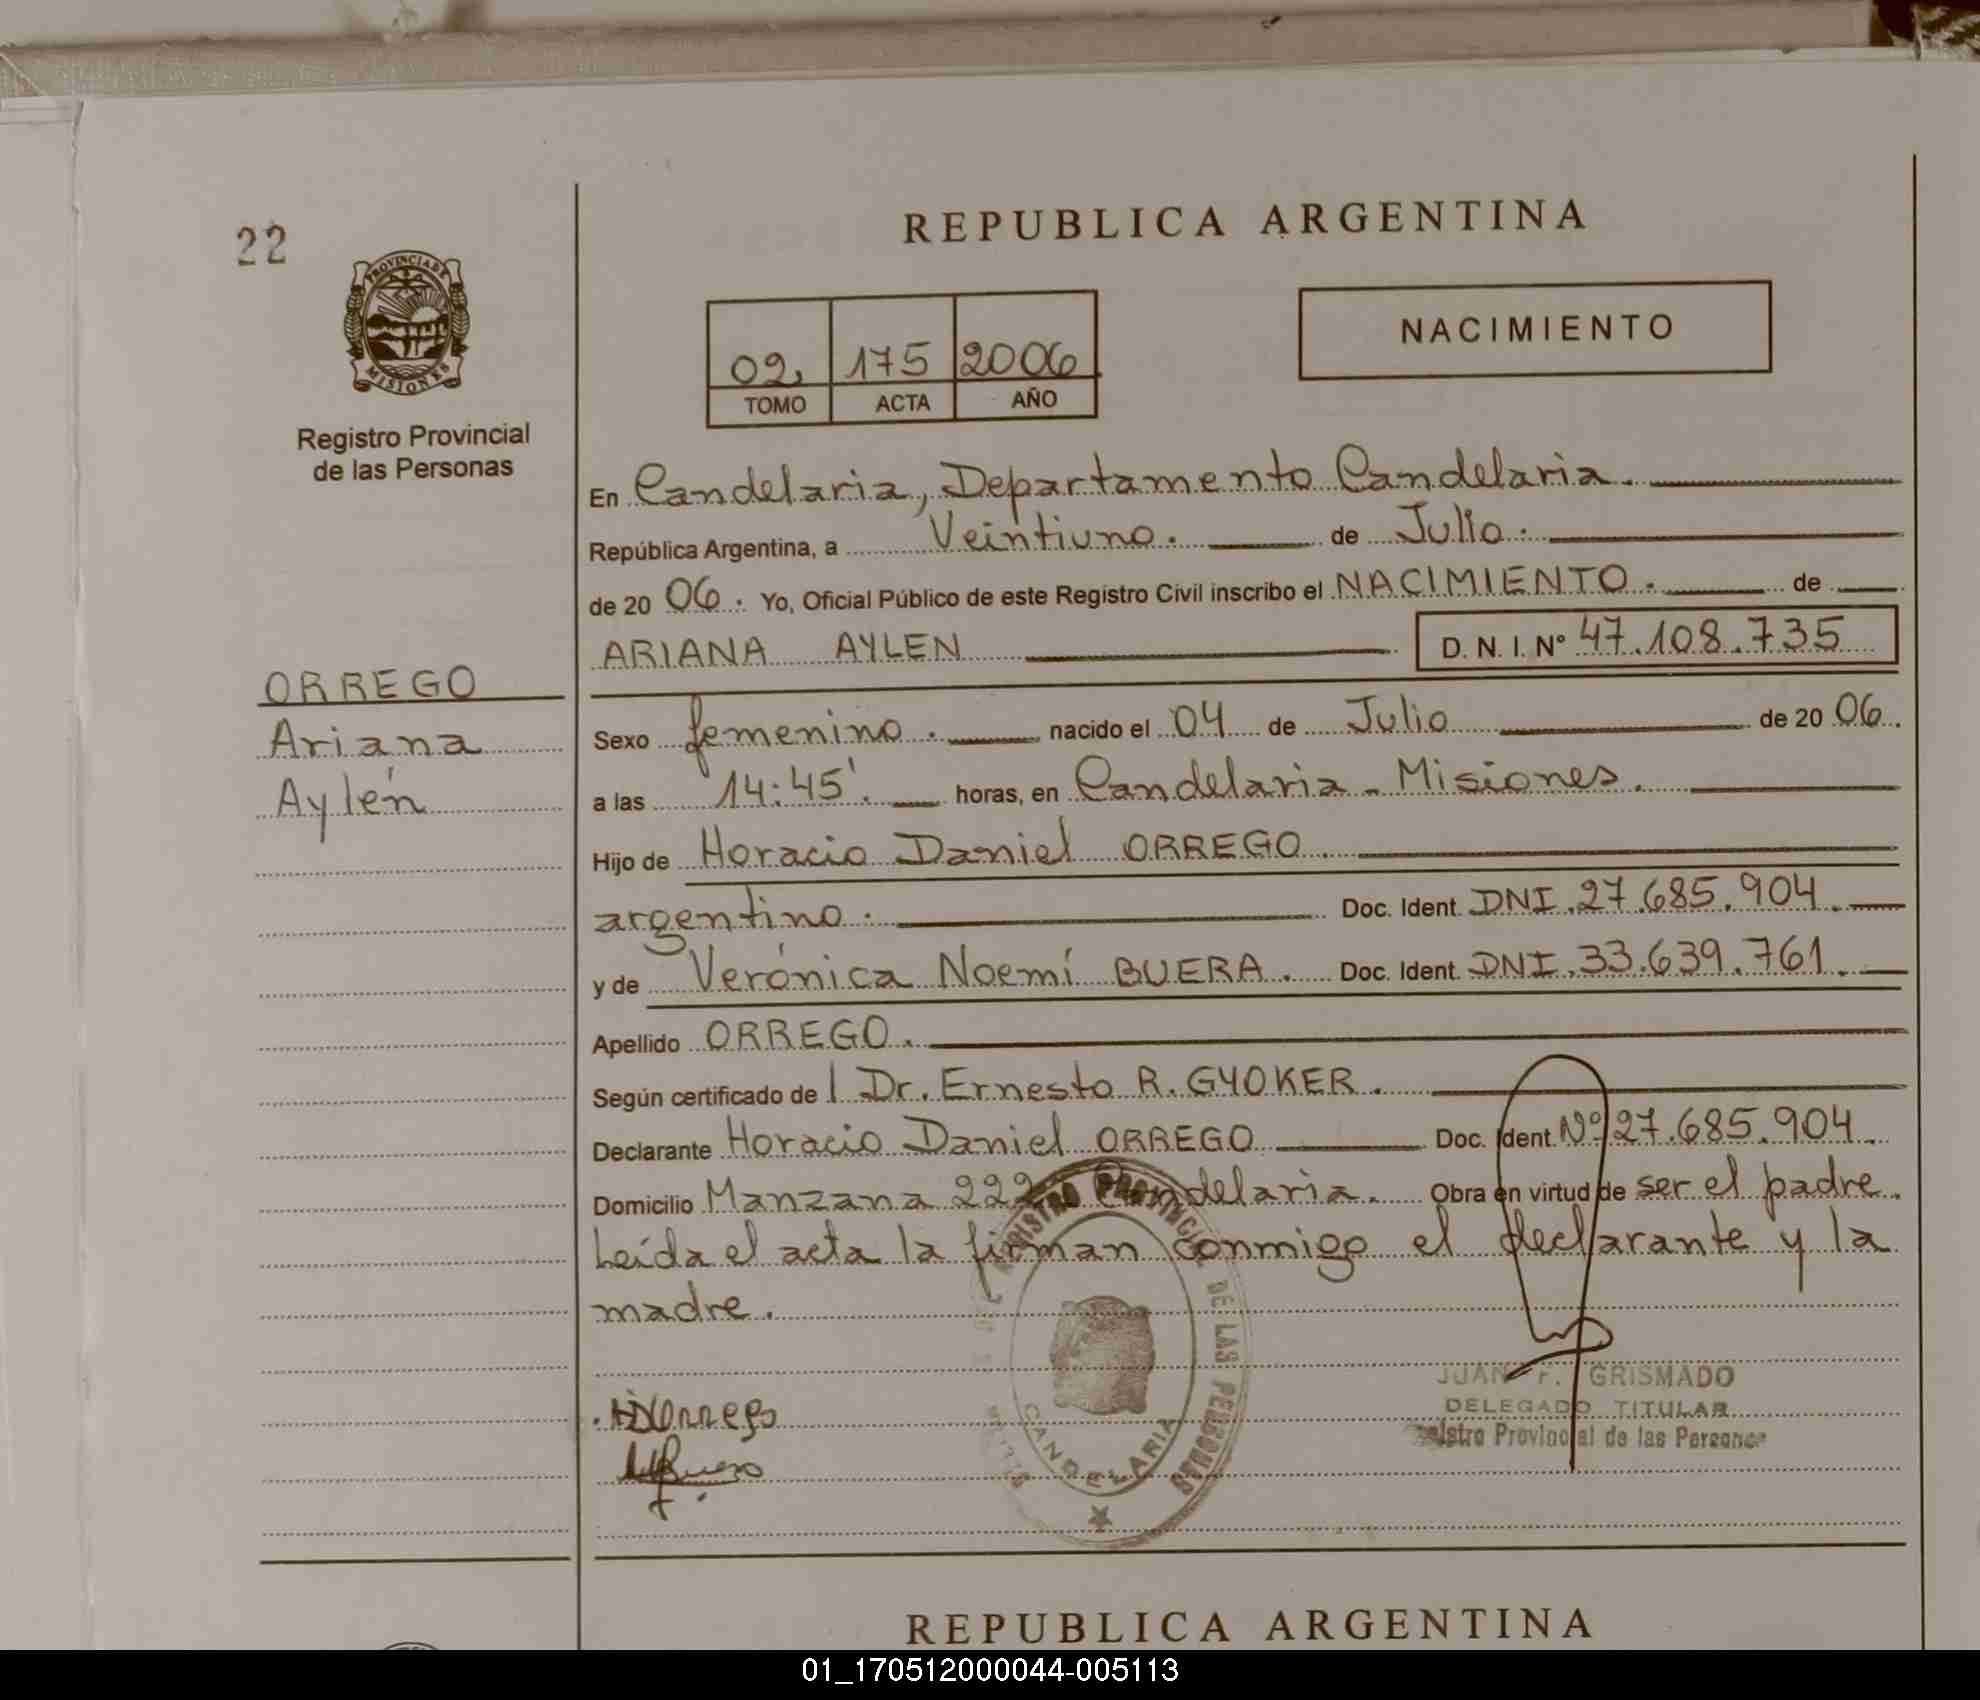 22
PROVINCIA DE
MISIONES
Registro Provincial
de las Personas
ORREGO
Ariana
Aylén
REPUBLICA ARGENTINA
02 175 2006
TOMO ACTA AÑO
NACIMIENTO
En Candelaria, Departamento Candelaria.
República Argentina, a Veintiuno. de Julio.
de 20 06. Yo, Oficial Público de este Registro Civil inscribo el NACIMIENTO. de
ARIANA AYLEN D. N. I. Nº 47.108.735
Sexo femenino. nacido el 04 de Julio de 20 06.
a las 14:45'. horas, en Candelaria - Misiones.
Hijo de Horacio Daniel ORREGO.
argentino. Doc. Ident. DNI.27.685.904.
y de Verónica Noemí BUERA. Doc. Ident. DNI.33.639.761.
Apellido ORREGO.
Según certificado de l Dr. Ernesto R. GYOKER.
Declarante Horacio Daniel ORREGO Doc. Ident. Nº 27.685.904.
Domicilio Manzana 222 Candelaria. Obra en virtud de ser el padre.
Leída el acta la firman conmigo el declarante y la
madre.
REGISTRO PROVINCIAL DE LAS PERSONAS
CANDELARIA
JUAN F. GRISMADO
DELEGADO TITULAR
Registro Provincial de las Personas
REPUBLICA ARGENTINA
01_170512000044-005113